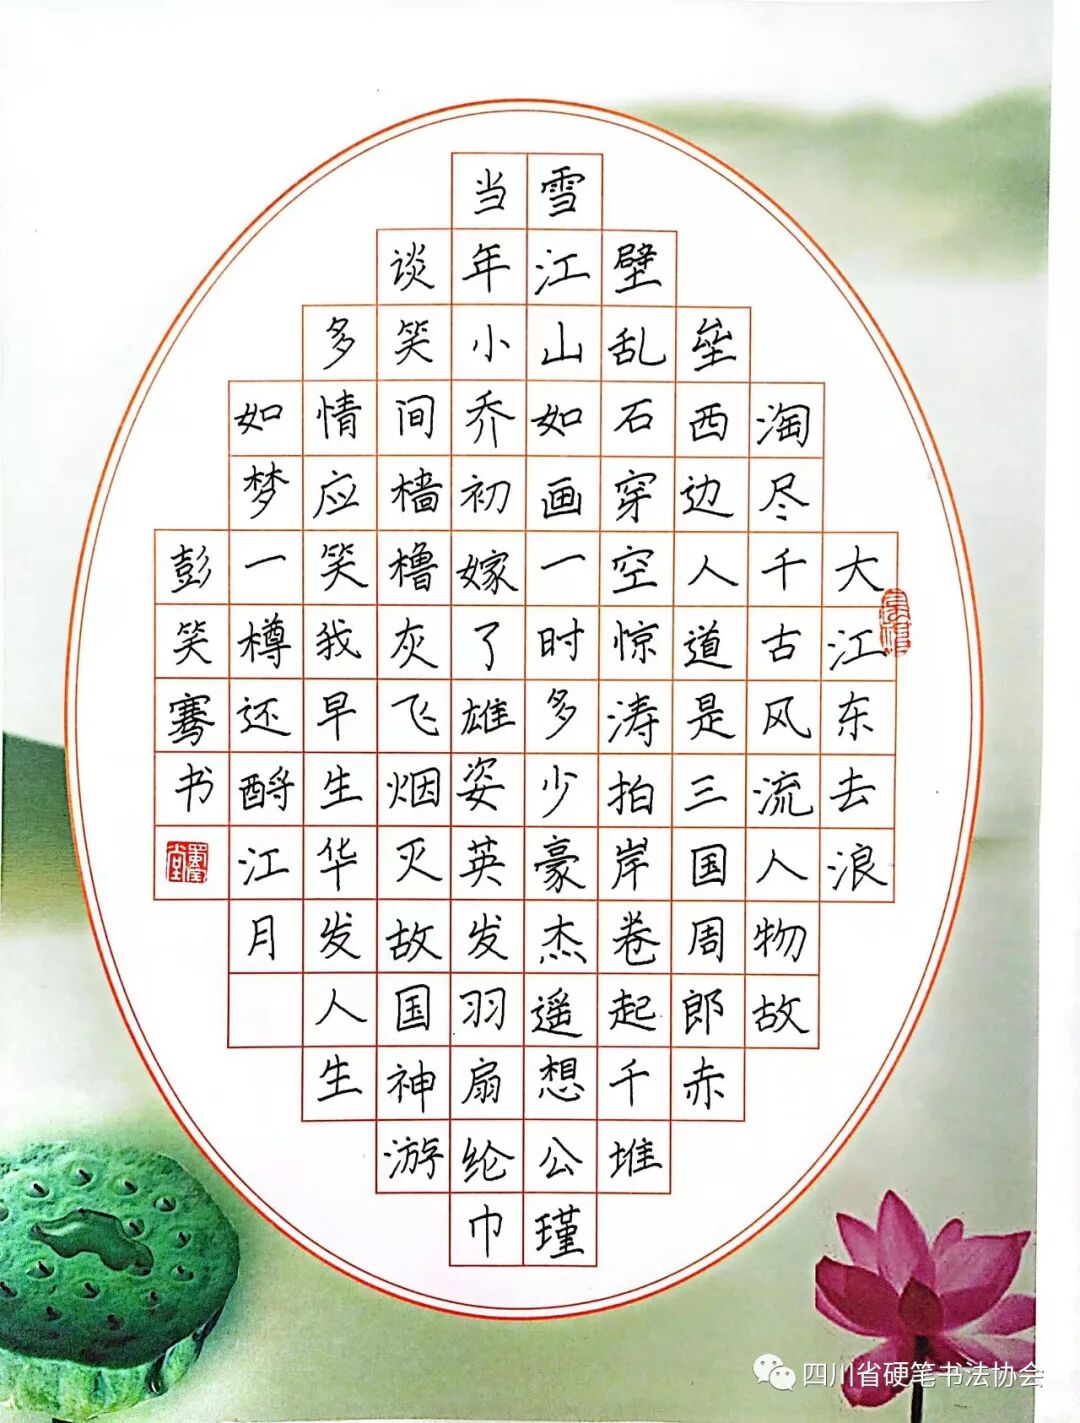 大江东去浪
淘尽千古风流人物故
垒西边人道是三国周郎赤
壁乱石穿空惊涛拍岸卷起千堆
雪江山如画一时多少豪杰遥想公瑾
当年小乔初嫁了雄姿英发羽扇纶巾
谈笑间樯橹灰飞烟灭故国神游
多情应笑我早生华发人生
如梦一樽还酹江月
彭笑骞书
四川省硬笔书法协会